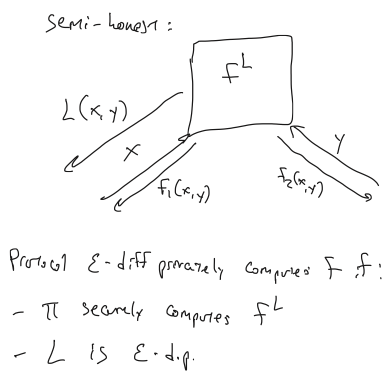 Semi-honest:
f^L
L(x,y)
x
y
f₁(x,y)
f₂(x,y)
Protocol ε-diff privately computes f if:
- π securely computes f^L
- L is ε-d.p.